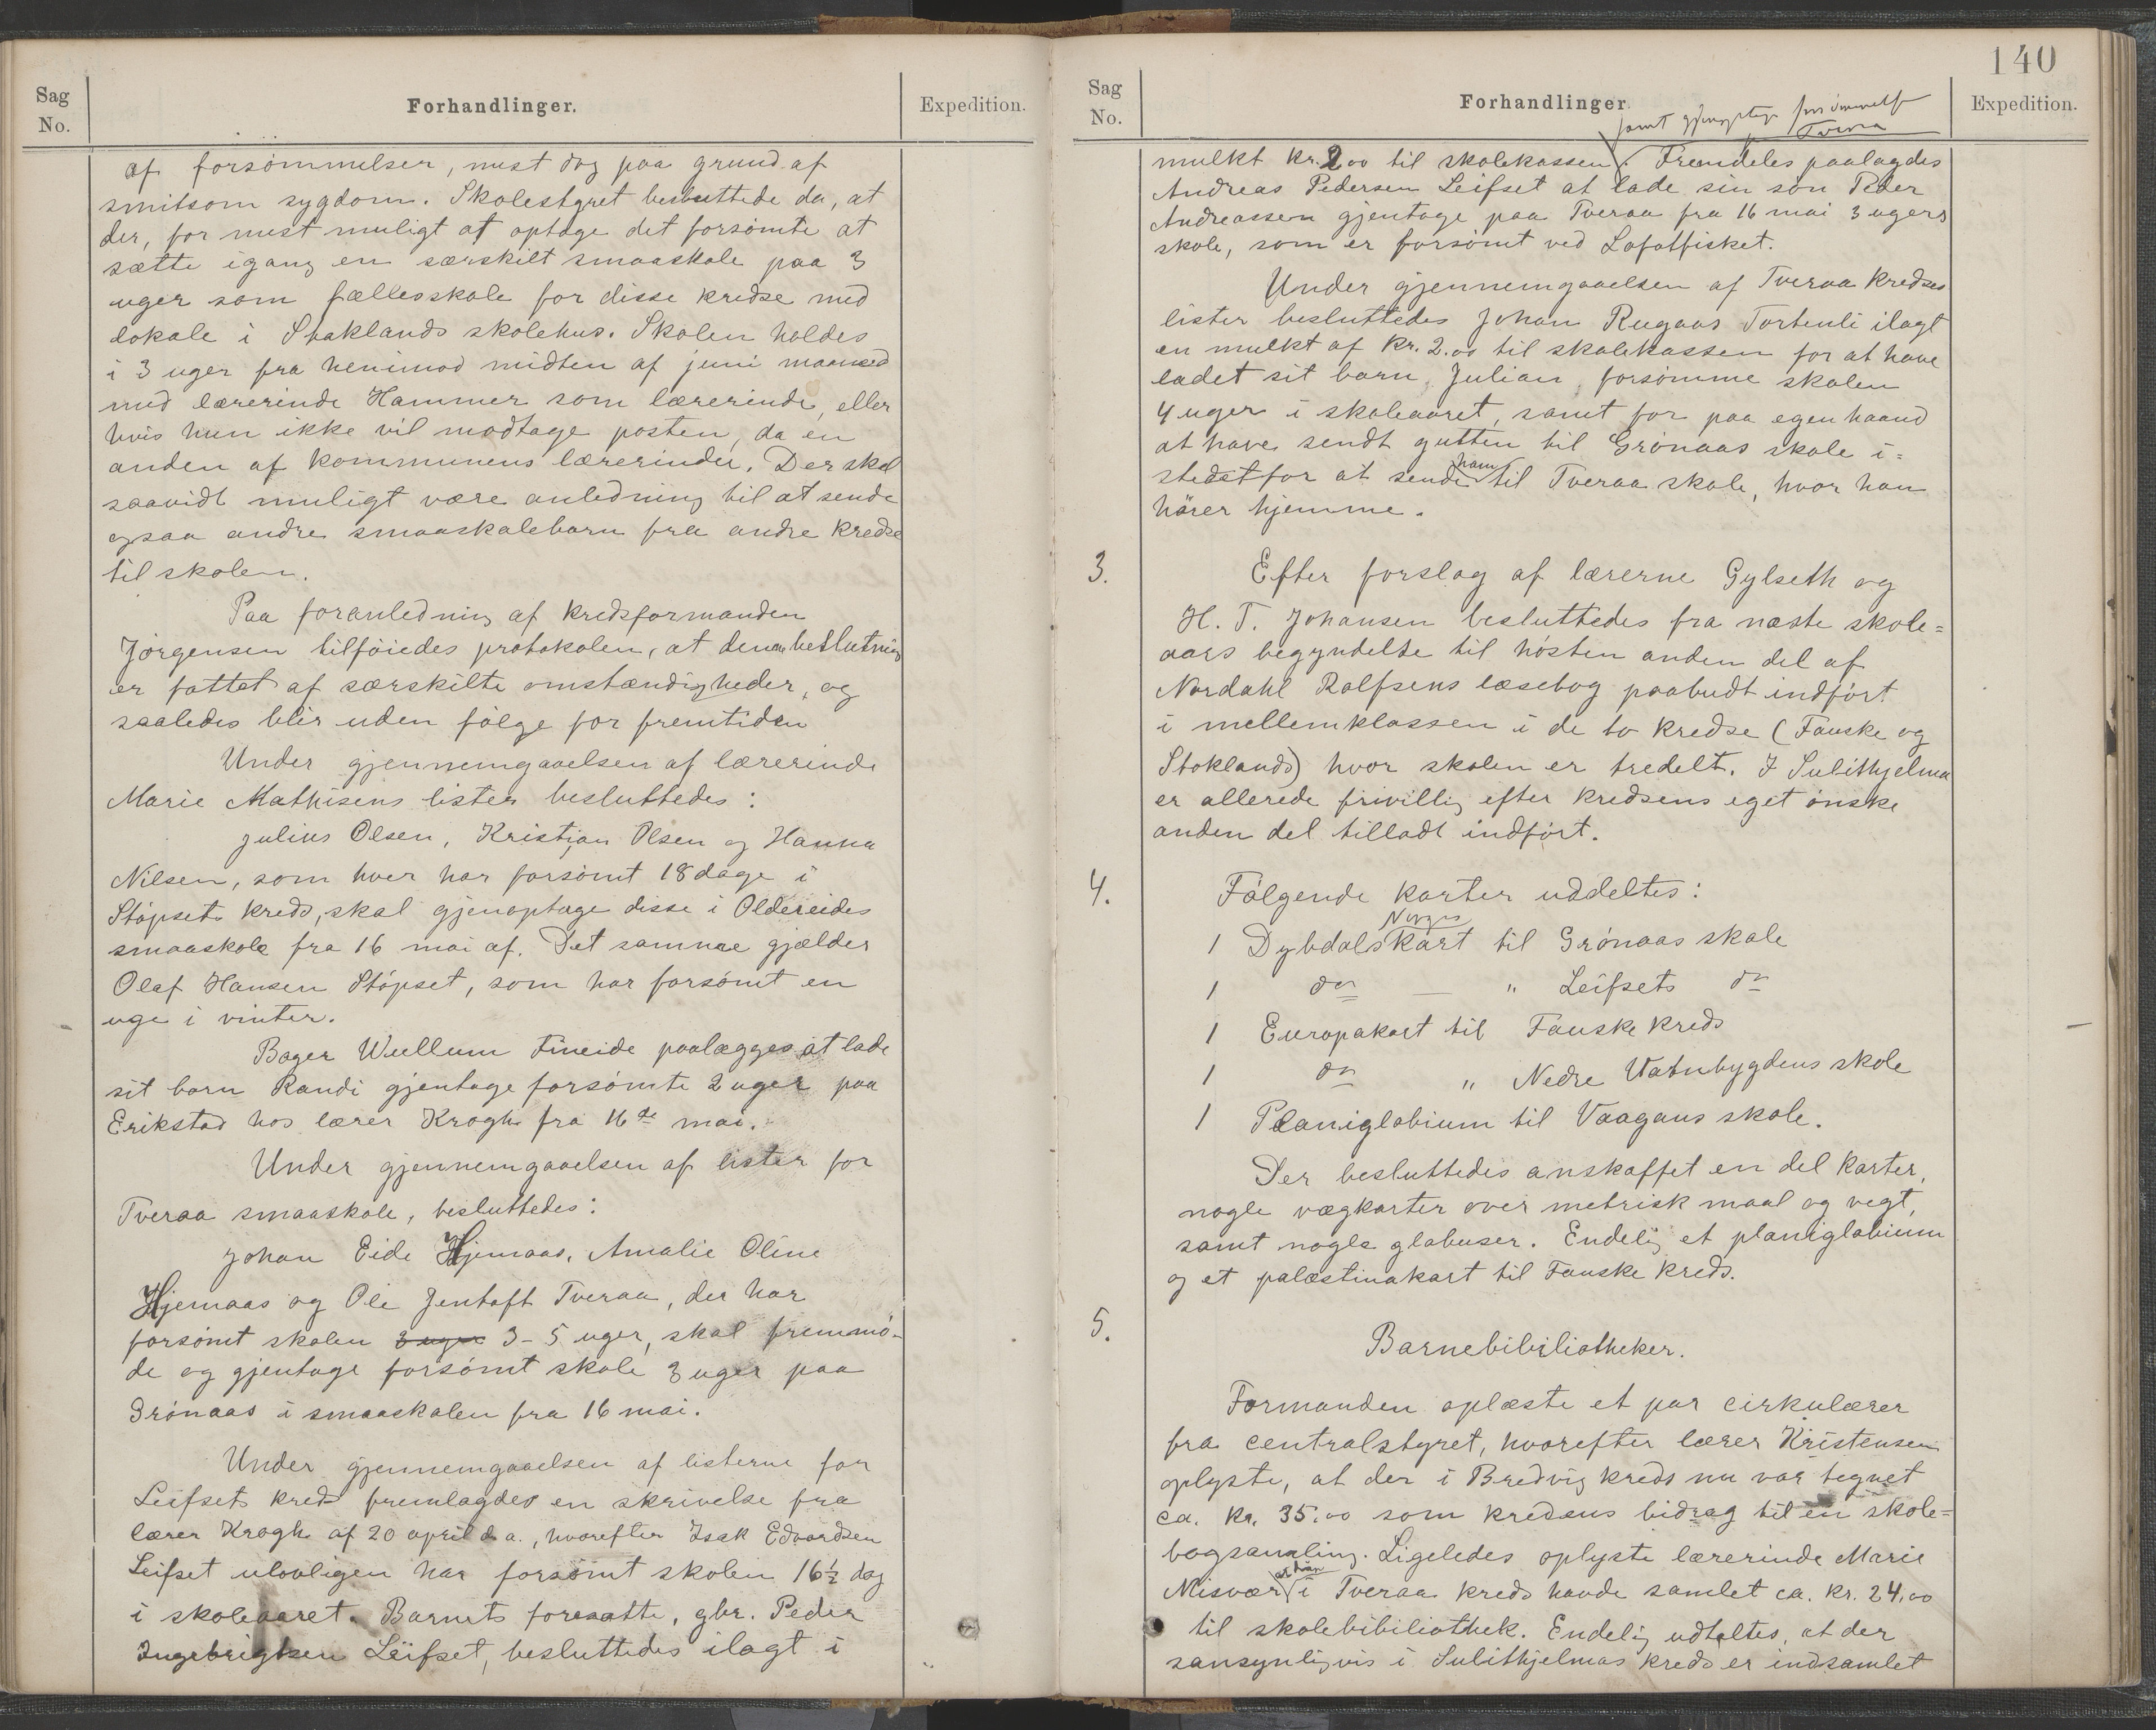 Sag
No.
Forhandlinger.
Expedition.
af forsömmelser, mest dog paa grund af
smitsom sygdom. Skolestyret besluttede da, at
der, for mest muligt at optage det forsömte at
sætte igang en særskilt smaaskole paa 3
uger som fællesskole for disse kredse med
lokale i Stoklands skolehus. Skolen holdes
i 3 uger fra henimod midten af juni maaned
med lærerinde Hammer som lærerinde, eller
hvis hun ikke vil modtage posten, da en
anden af kommunens lærerinder. Der skal
saavidt muligt være anledning til at sende
ogsaa andre smaaskolebarn fra andre kredse
til skolen.
Paa foranledning af kredsformanden
Jörgensen tilföiedes protokolen, at denne beslutning
er fattet af særskilte omstændigheder, og
saaledes blir uden fölge for fremtiden
Under gjennemgaaelsen af lærerinde
Marie Mathisens lister besluttedes:
Julius Olsen, Kristjan Olsen og Hanna
Nilsen, som hver har forsömt 18 dage i
Stöpsets kreds, skal gjenoptage disse i Oldereides
smaaskole fra 16 mai af. Det samme gjælder
Olaf Hansen Stöpset, som har forsömt en
uge i vinter.
Bager Wullum Fineide paalægges at lade
sit barn Randi gjentage forsömte 2 uger paa
Erikstad hos lærer Krogh fra 16de mai.
Under gjennemgaaelsen af lister for
Tveraa smaaskole, besluttedes:
Johan Eide Hjemaas, Amalie Oline
Hjemaas og Ole Jentoft Tveraa, der har
forsömt skolen 3 uger 3-5 uger, skal fremmö-
de og gjentage forsömt skole 3 uger paa
Grönaas i smaaskolen fra 16 mai.
Under gjennemgaaelsen af listerne for
Leifsets kreds fremlagdes en skrivelse fra
lærer Krogh af 20 april d. a., hvorefter Isak Edvardsen
Leifset ulovligen har forsömt skolen 16½ dag
i skoleaaret. Barnets foresatte, gbr. Peder
Ingebrigtsen Leifset, besluttedes ilagt i
140
Sag
No.
Forhandlinger
Expedition.
samt gjenoptage
Tveraa
mulkt kr. 2.00 til skolekassen. Fremdeles paalagdes
Andreas Pedersen Leifset at lade sin sön Peder
Andreassen gjentage paa Tveraa fra 16 mai 3 ugers
skole, som er forsömt ved Lofotfisket.
Under gjennemgaaelsen af Tveraa kredses
lister besluttedes Johan Rugaas Tortenli ilagt
en mulkt af kr. 2.00 til skolekassen for at have
ladet sit barn, Julian, forsömme skolen
4 uger i skoleaaret, samt for paa egen haand
at have sendt gutten til Grönaas skole i=
stedetfor at sende ham til Tveraa skole, hvor han
hörer hjemme.
3.
Efter forslag af lærerne Gylseth og
H. T. Johansen besluttedes fra næste skole=
aars begyndelse til hösten anden del af
Nordahl Rolfsens læsebog paabudt indfört
i mellemklassen i de to kredse (Fauske og
Stoklands) hvor skolen er tredelt. I Sulithjelma
er allerede frivillig efter kredsens eget önske
anden del tilladt indfört.
4.
Fölgende karter uddeltes:
1 Dybdals Norges kart til Grönaas skole
1 do — " Leifsets do
1 Europakart til Fauske kreds
1 do " Nedre Vatnbygdens skole
1 Planiglobium til Vaagans skole.
Der besluttedes anskaffet en del karter,
nogle vægkarter over metrisk maal og vegt,
samt nogle globuser. Endelig et planiglobium
og et palæstinakart til Fauske kreds.
5.
Barnebibiliotheker.
Formanden oplæste et par cirkulærer
fra centralstyret, hvorefter lærer Kristensen
oplyste, at der i Bredvig kreds nu var tegnet
ca. kr. 35.00 som kredsens bidrag til en skole=
bogsamling. Ligeledes oplyste lærerinde Marie
Misvær at hun i Tveraa kreds havde samlet ca. kr. 24.00
til skolebibiliothek. Endelig udtaltes, at der
sansynligvis i Sulithjelmas kreds er indsamlet